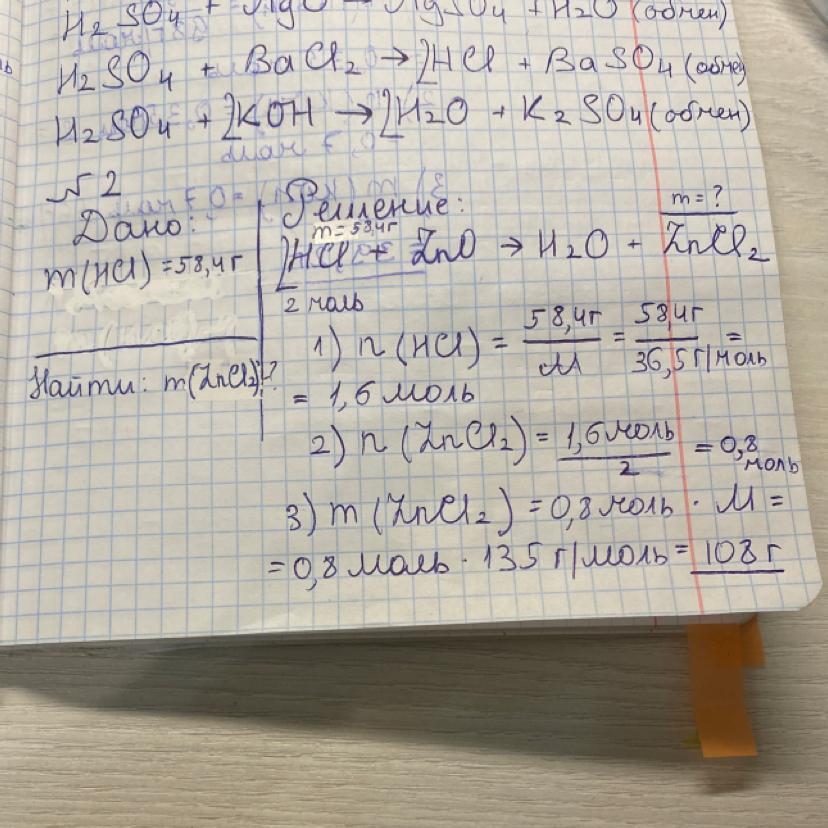 H2SO4 + MgO → MgSO4 + H2O (обмен)
H2SO4 + BaCl2 → 2HCl + BaSO4 (обмен)
H2SO4 + 2KOH → 2H2O + K2SO4 (обмен)
№2
Дано:
m(HCl) = 58,4г
Найти: m(ZnCl2)-?
Решение:
m=58,4г m=?
2HCl + ZnO → H2O + ZnCl2
2 моль
1) n(HCl) = 58,4г/M = 58,4г/36,5г/моль =
= 1,6 моль
2) n(ZnCl2) = 1,6 моль/2 = 0,8 моль
3) m(ZnCl2) = 0,8 моль · M =
= 0,8 моль · 135 г/моль = 108 г